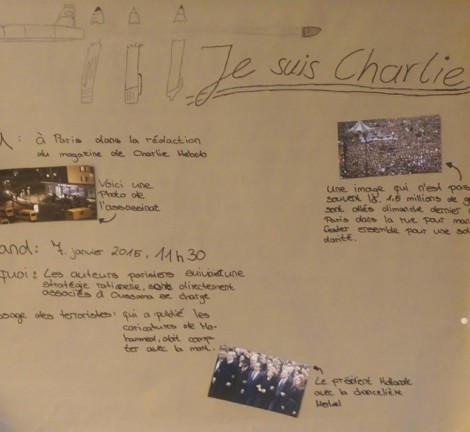 Je suis Charlie
à Paris dans la rédaction
du magazine de Charlie Hebdo
Voici une
photo de
l'assassinat
Une image qui n'est pas
souvent là. 1,5 millions de g
sont allés dimanche dernier
Paris dans la rue pour mani
fester ensemble pour une soli
darité.
and: 7. janvier 2015, 11h30
quoi: Les auteurs parisiens suivait une
stratégie rationelle, sont directement
associés à Oussama se charge
sage des terroristes: qui a publié les
caricatures de Mo-
hammed, doit comp-
ter avec la mort.
Le président Hollande
avec la chancelière
Merkel